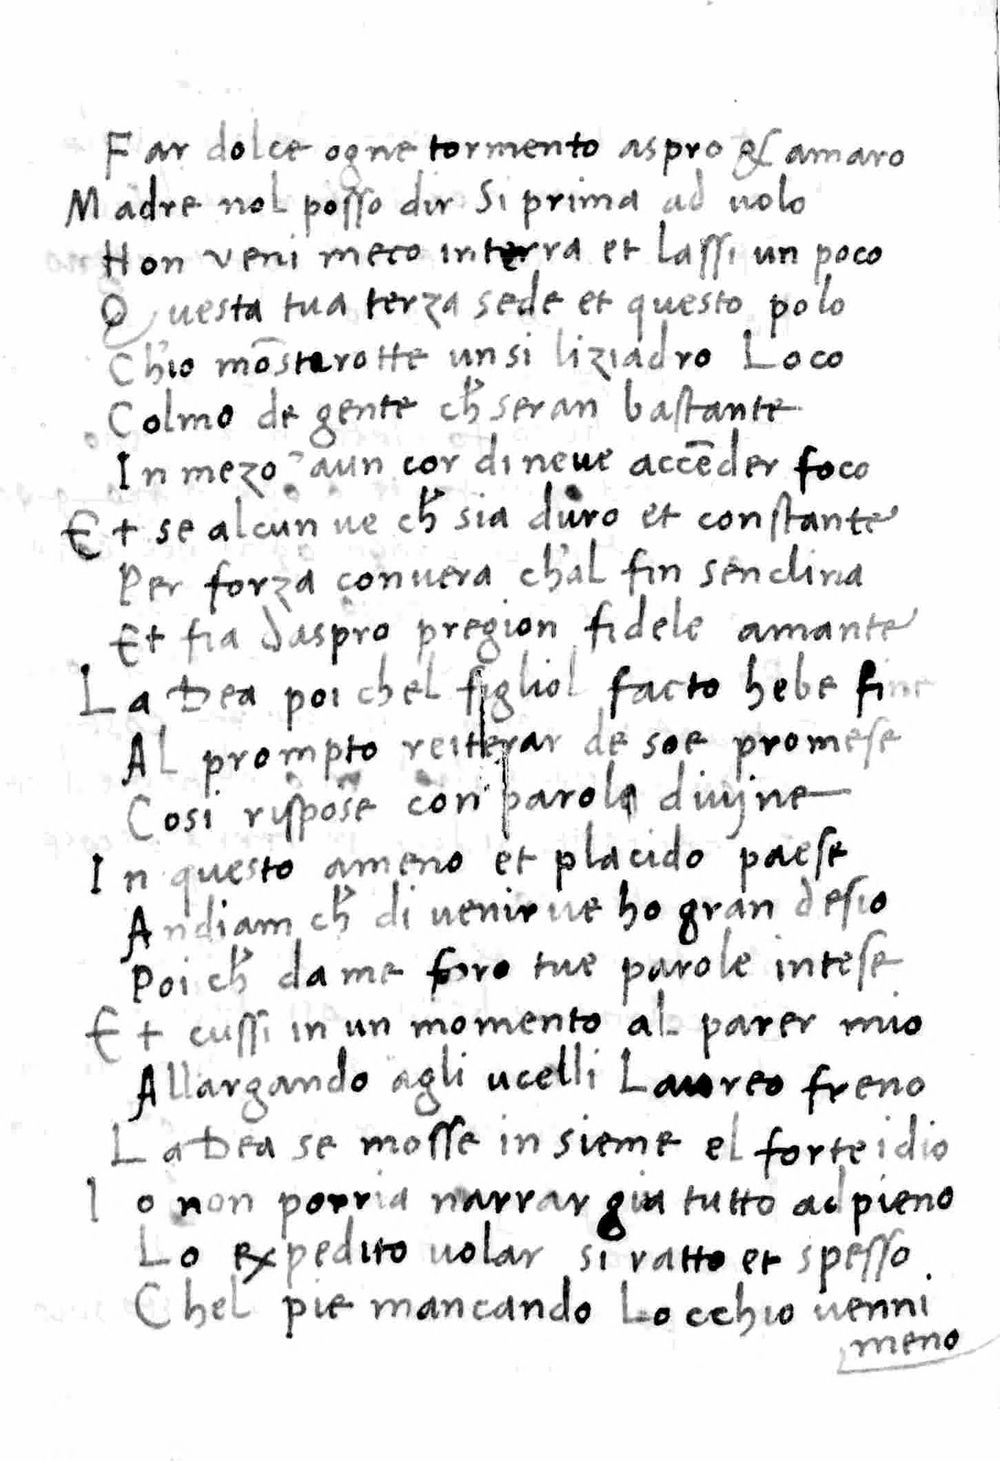 Far dolce ogne tormento aspro & amaro
Madre nol posso dir Si prima ad uolo
Non veni meco in terra et lassi un poco
Questa tua terza sede et questo polo
Ch'io mõstarotte un si liziadro Loco
Colmo de gente ch̃ seran bastante
In mezo aun cor di neue accẽder foco
Et se alcun ue ch̃ sia duro et constante
Per forza conuera ch'al fin senclina
Et fia daspro pregion fidele amante
La Dea poi chel figliol facto hebe fine
Al prompto reiterar de soe promese
Cosi rispose con parole diuine
In questo ameno et placido paese
Andiam ch̃ di venir ue ho gran desio
Poi ch̃ da me foro tue parole intese
Et cussi in un momento al parer mio
Allargando agli ucelli Laureo freno
La Dea se mosse in sieme el forte idio
Io non porria narrar gia tutto ad pieno
Lo expedito uolar si ratto et spesso
Chel pie mancando Locchio uenni
meno